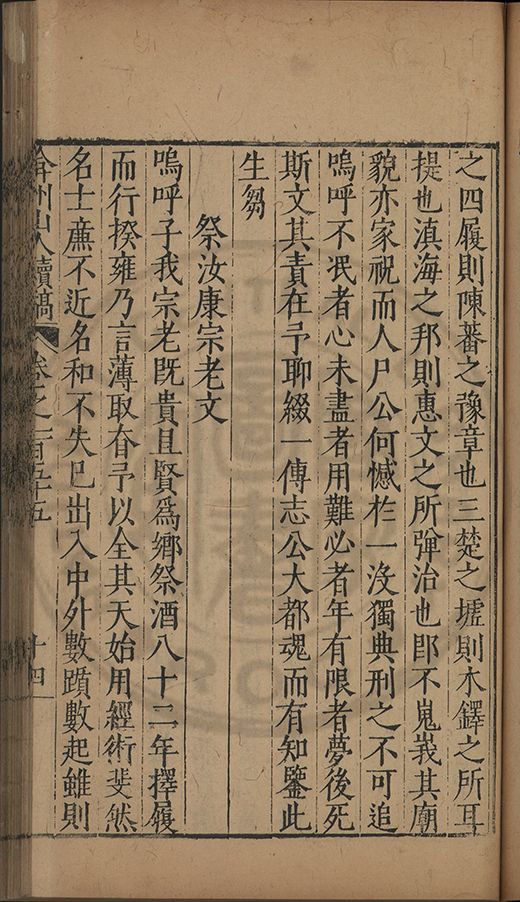 之四履則陳蕃之豫章也三楚之墟則木鐸之所耳
提也滇海之邦則惠文之所彈治也卽不嵬峩其廟
貌亦家祝而人尸公何憾於一没獨典刑之不可追
嗚呼不泯者心未盡者用難必者年有限者夢後死
斯文其責在予聊綴一傳志公大都魂而有知鑒此
生芻
祭汝康宗老文
嗚呼子我宗老既貴且賢爲鄉祭酒八十二年擇履
而行揆雍乃言薄取奋予以全其天始用經術斐然
名士廉不近名和不失巳出入中外數躓數起雖則
弇州山人續稿 卷之一百五十五 十四